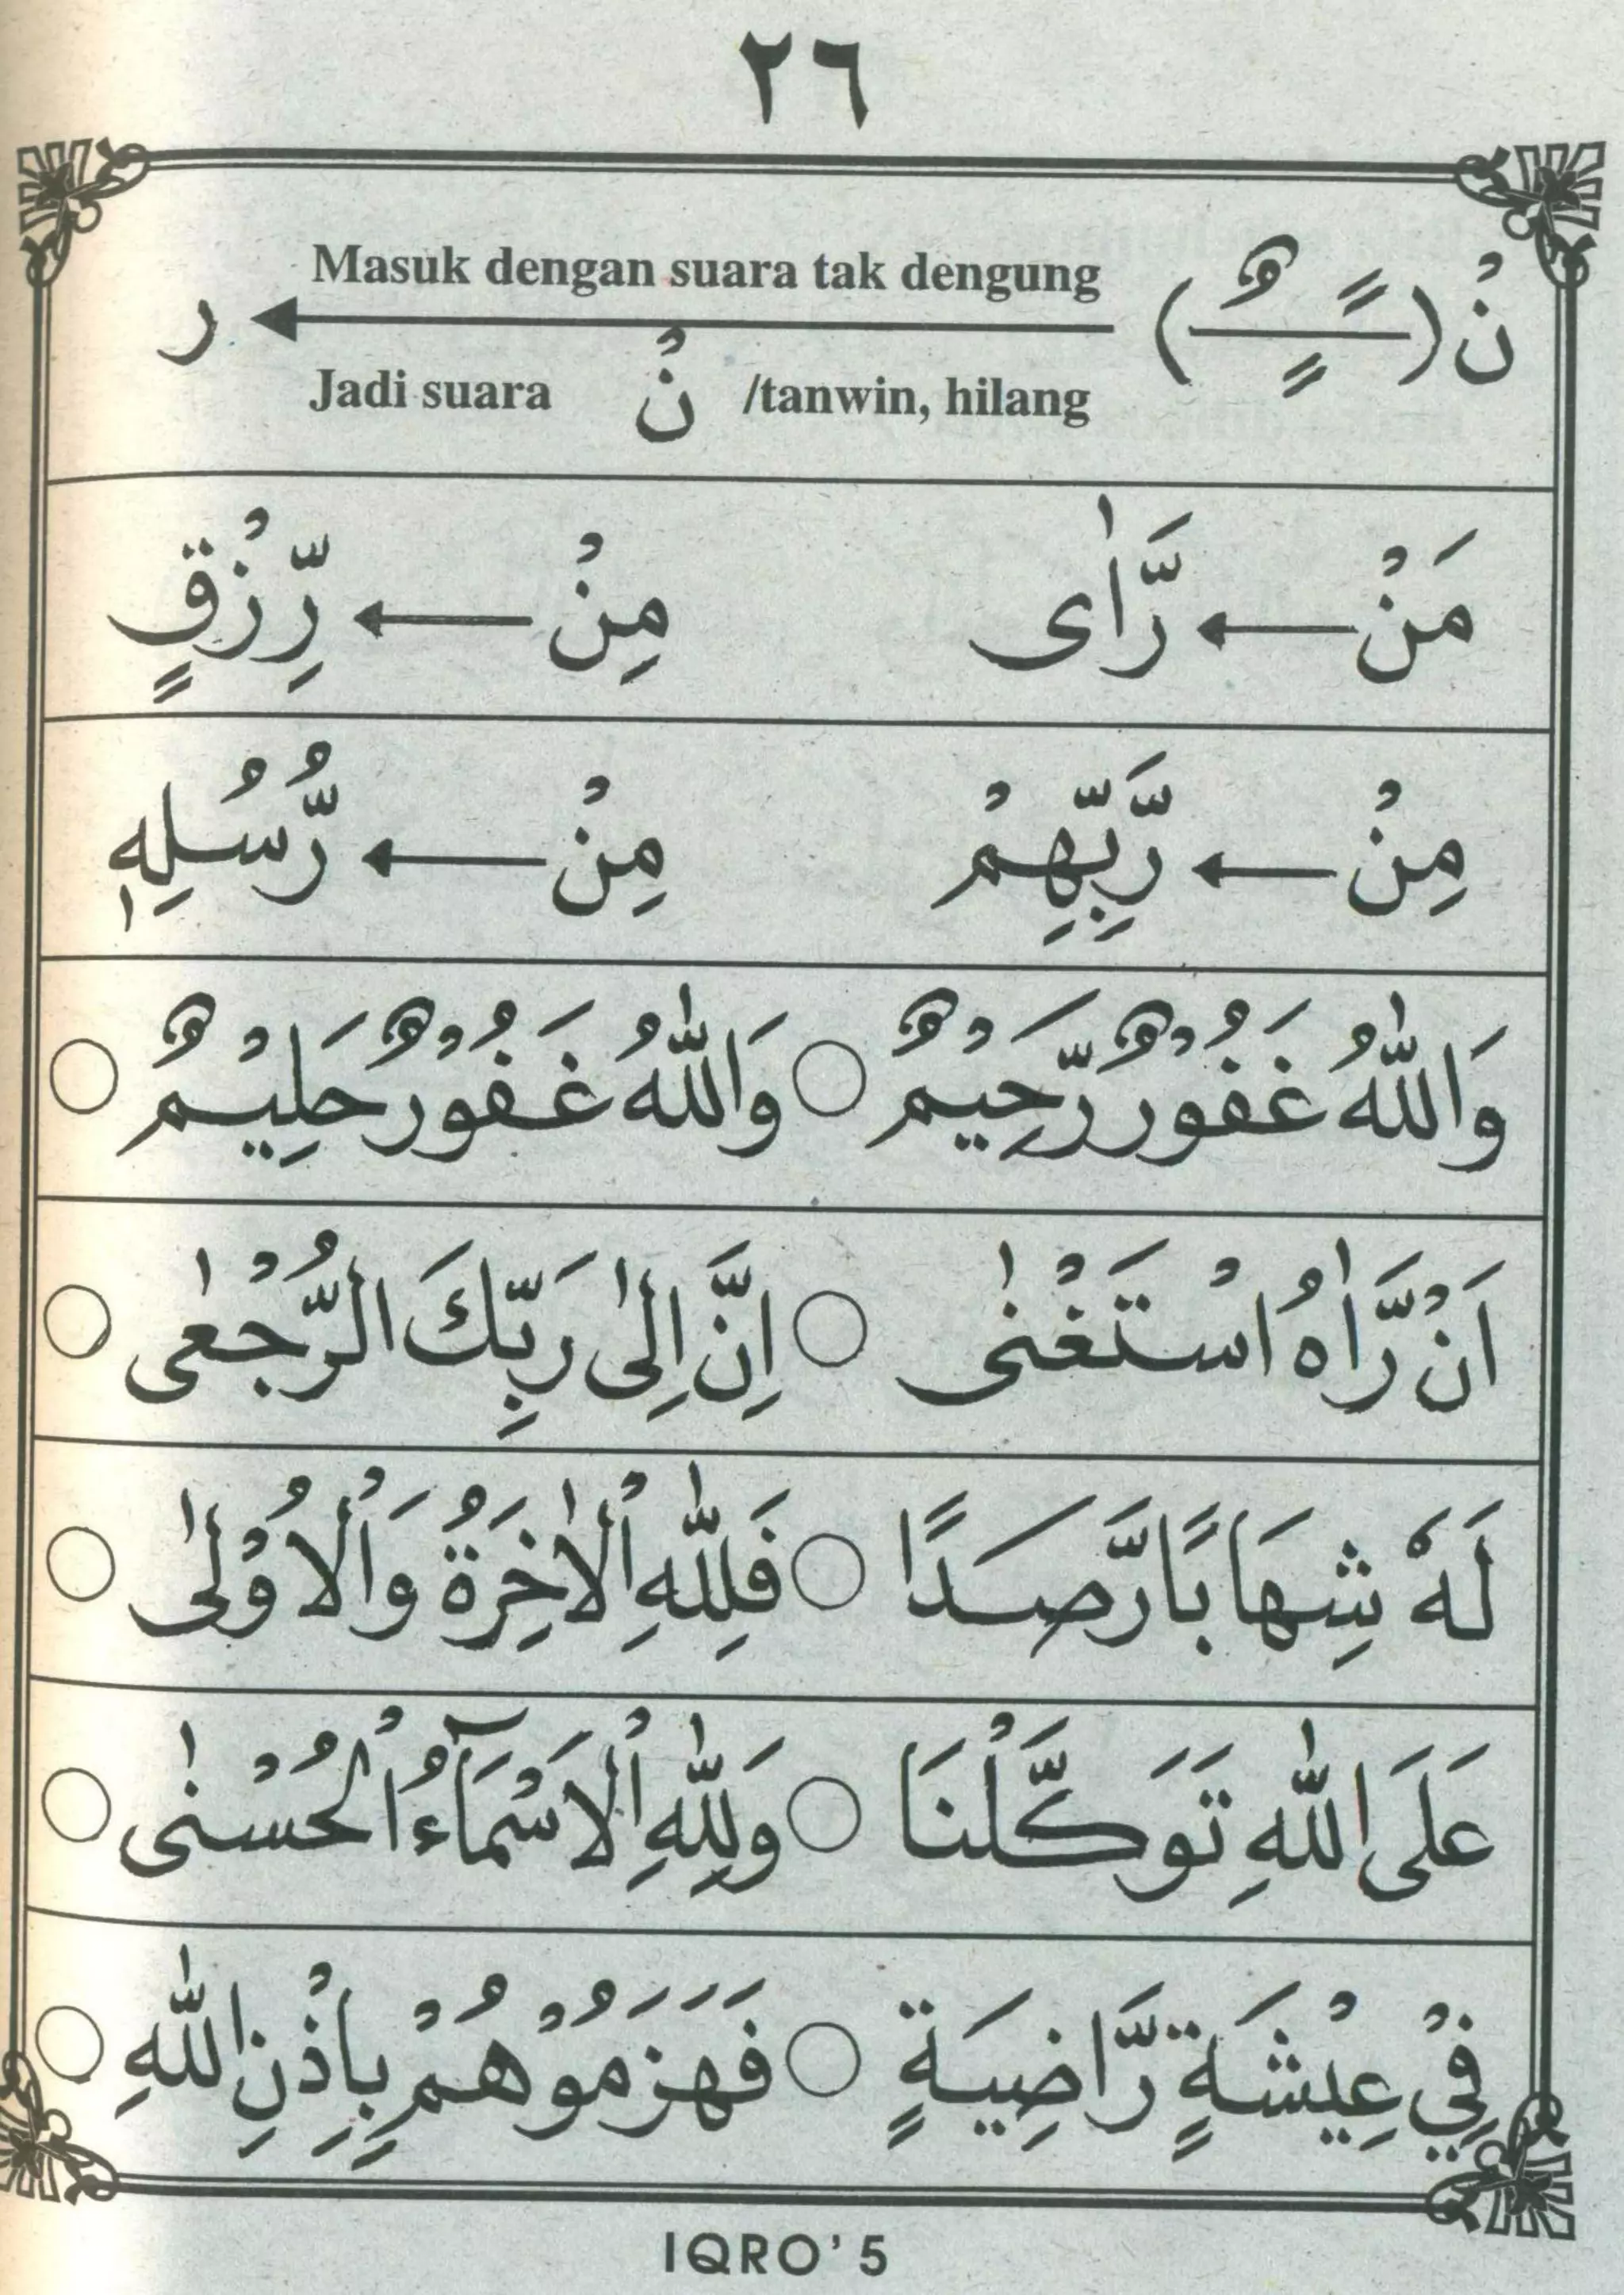 ٢٦
نْ (ـًـٍـٌ) Masuk dengan suara tak dengung ر
Jadi suara نْ /tanwin, hilang
مَنْ رَّاٰى مِنْ رِّزْقٍ
مِنْ رَّبِّهِمْ مِنْ رُّسُلِهٖ
وَاللّٰهُ غَفُوْرٌ رَّحِيْمٌ ○ وَاللّٰهُ غَفُوْرٌ حَلِيْمٌ ○
اَنْ رَّاٰهُ اسْتَغْنٰى ○ اِنَّ اِلٰى رَبِّكَ الرُّجْعٰى ○
لَهٗ شِهَابًا رَّصَدًا ○ فَلِلّٰهِ الْاٰخِرَةُ وَالْاُوْلٰى ○
عَلَى اللّٰهِ تَوَكَّلْنَا ○ وَلِلّٰهِ الْاَسْمَآءُ الْحُسْنٰى ○
فِيْ عِيْشَةٍ رَّاضِيَةٍ ○ فَهَزَمُوْهُمْ بِاِذْنِ اللّٰهِ ○
IQRO' 5